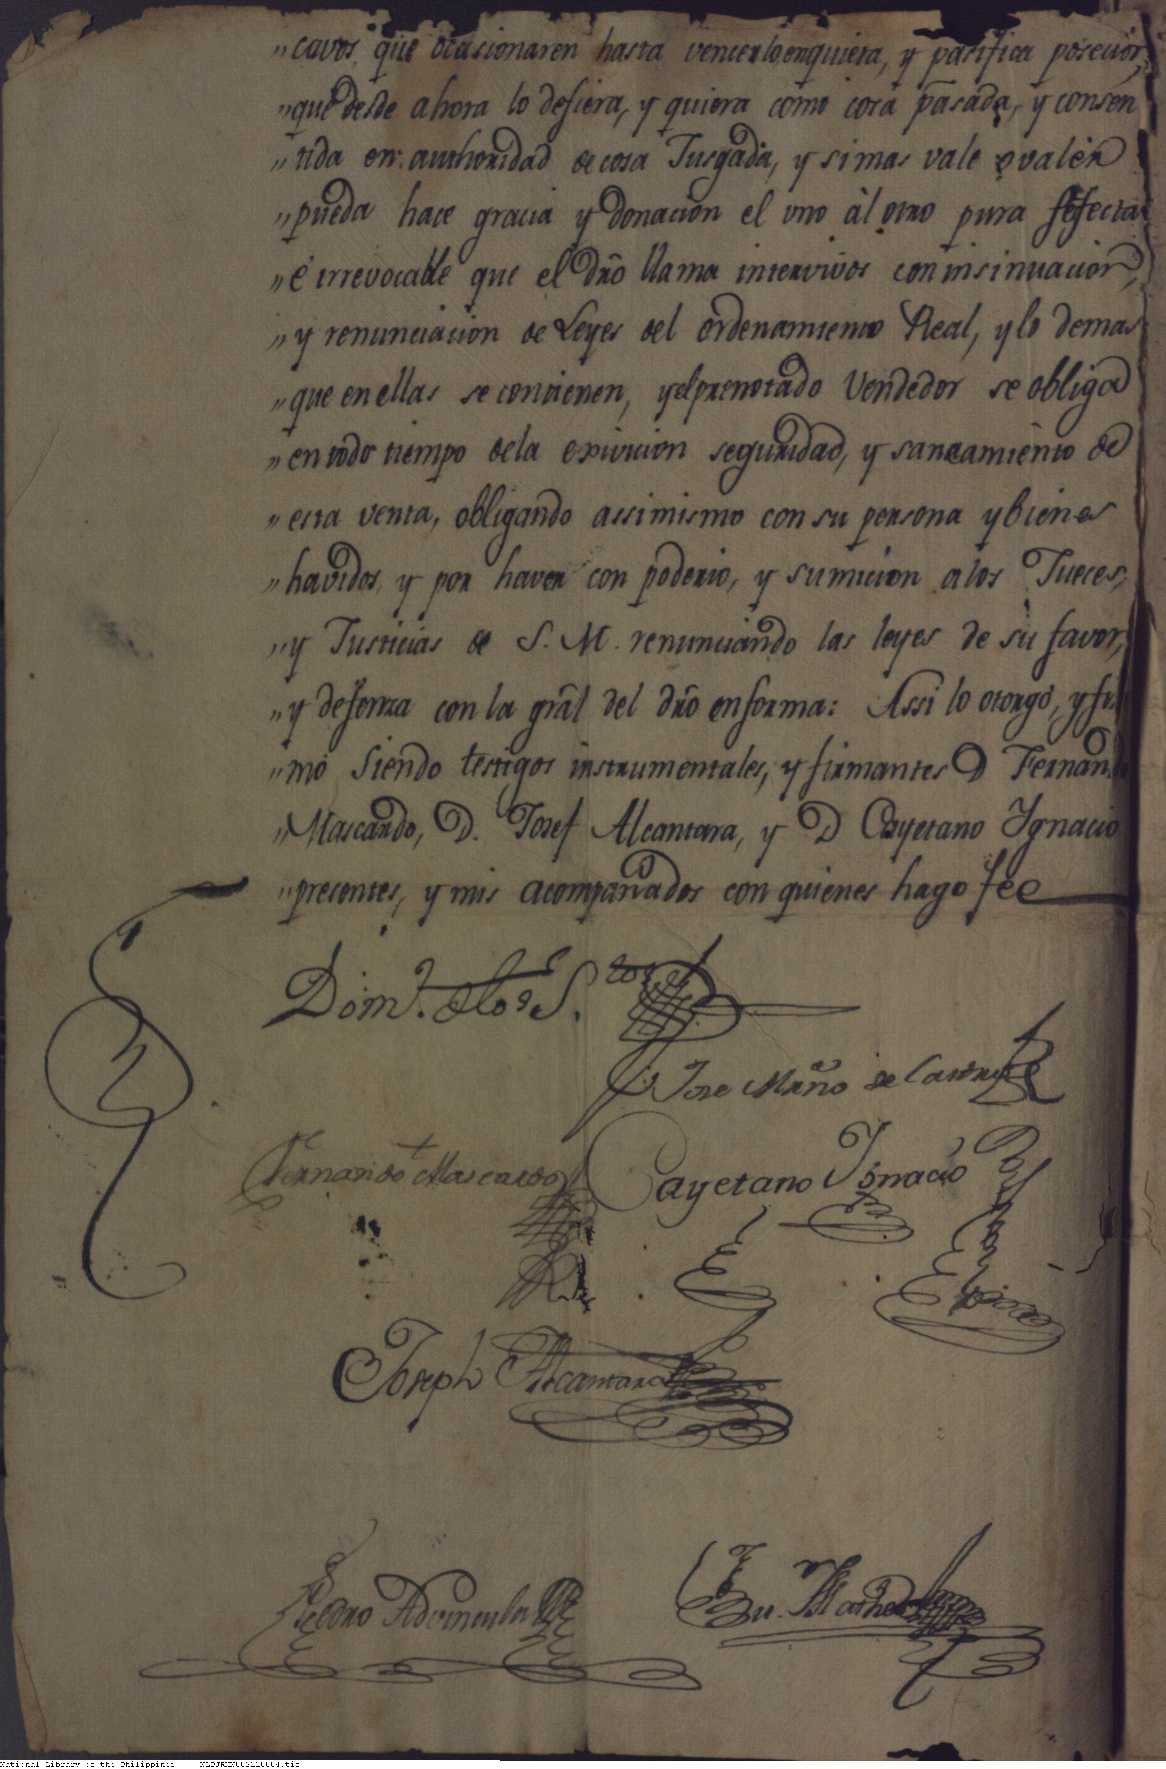 "cavos, que ocasionaren hasta vencerlo enquieta, y pacifica posecion,
"que desde ahora lo defiera, y quiera como cosa pasada, y consen
"tida en authoridad de cosa Jusgada, y si mas vale o valer
"pueda hace gracia y donacion el uno àl otro pura perfecta
"é irrevocable que el dr̃o llama intervivos con insinuacion,
"y renunciacion de Leyes del ordenamiento Real, y lo demas
"que en ellas se contienen, y el prenotado Vendedor se obliga
"en todo tiempo dela eviccion seguridad, y saneamiento de
"esta venta, obligando assimismo con su persona y bienes
"havidos, y por haver con poderio, y sumicion a los Jueces,
"y Justicias de S. M. renunciando las leyes de su favor,
"y defenza con la grãl del dr̃o enforma: Assi lo otorgó, y fir
"mó siendo testigos instrumentales, y firmantes D Fernando
"Mascardo, D. Josef Alcantara, y D Cayetano Ignacio
"presentes, y mis acompañados con quienes hago fee
Domo. de los S.tos
Jose Mrño de Castro
Fernando Mascardo Cayetano Ignacio
Joseph Alcantara
Pedro Advincula
National Library of the Philippines